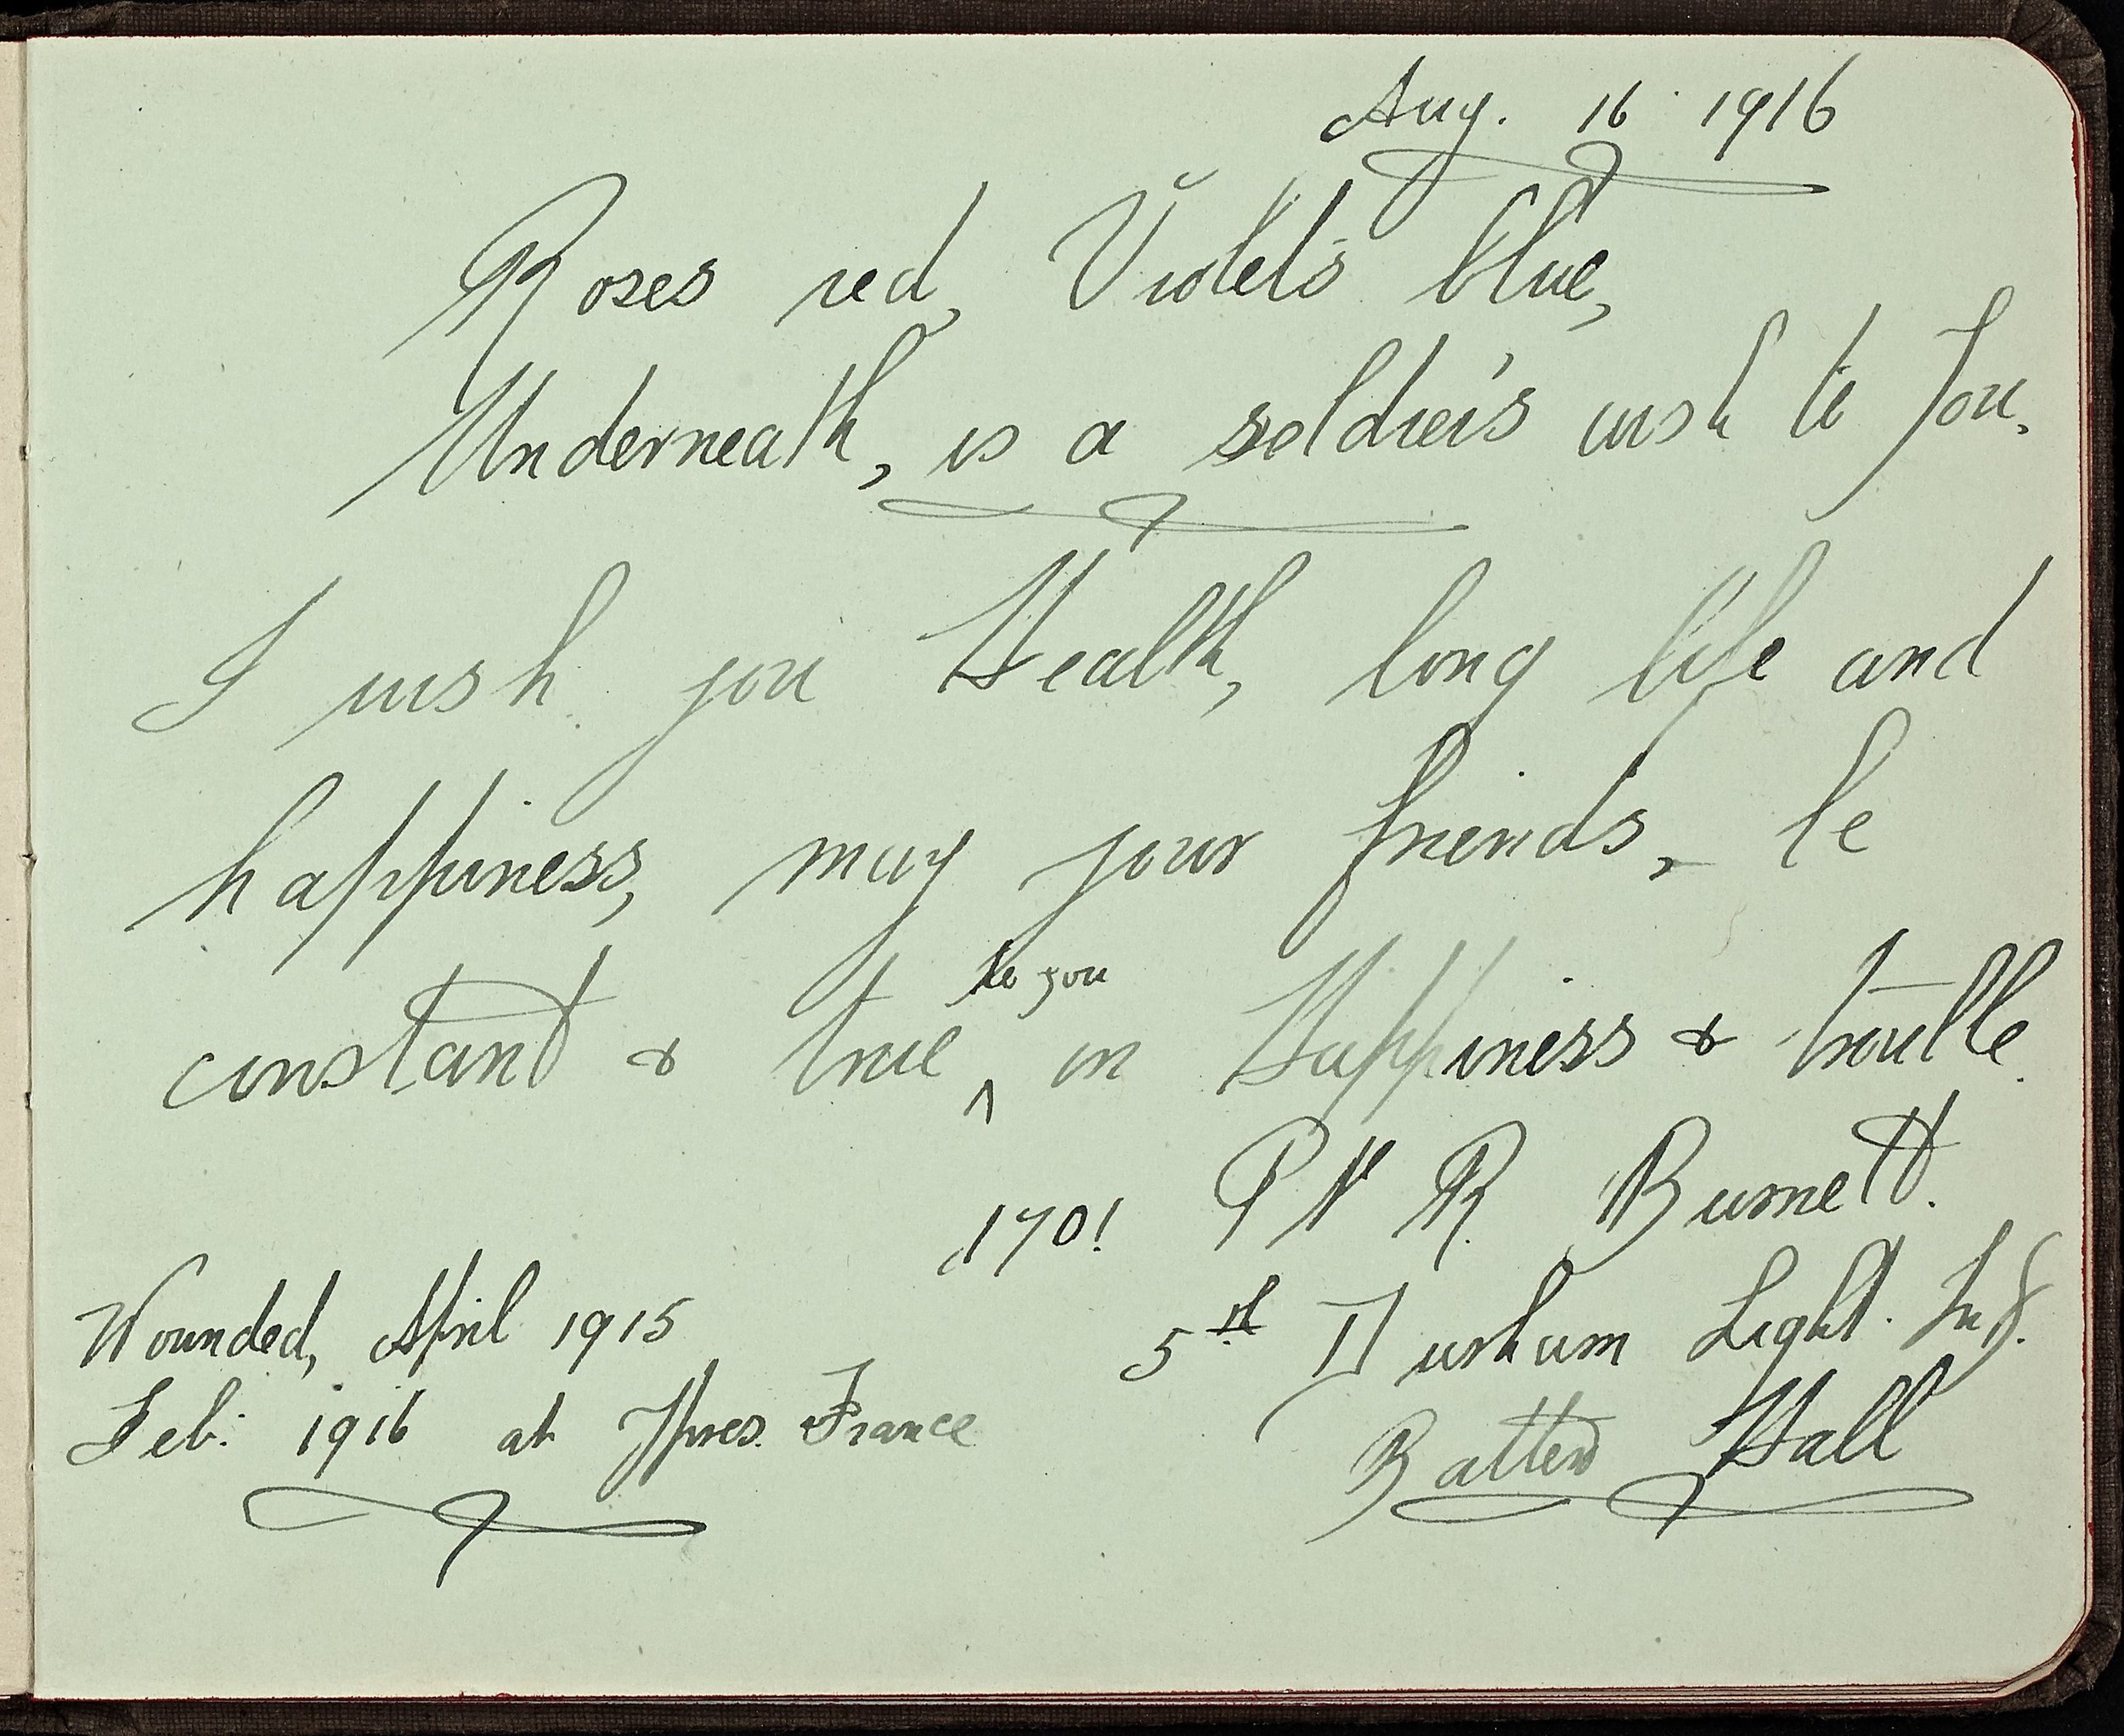 Aug. 16 1916
Roses red, Violets blue,
Underneath, is a soldier's wish to You.
I wish you Health, long life and
happiness, may your friends, be
constant & true to you in Happiness & trouble.
1701 Pte R. Burnett.
5th Durham Light. Inf.
Hall
Wounded, April 1915
Feb. 1916 at Ypres. France